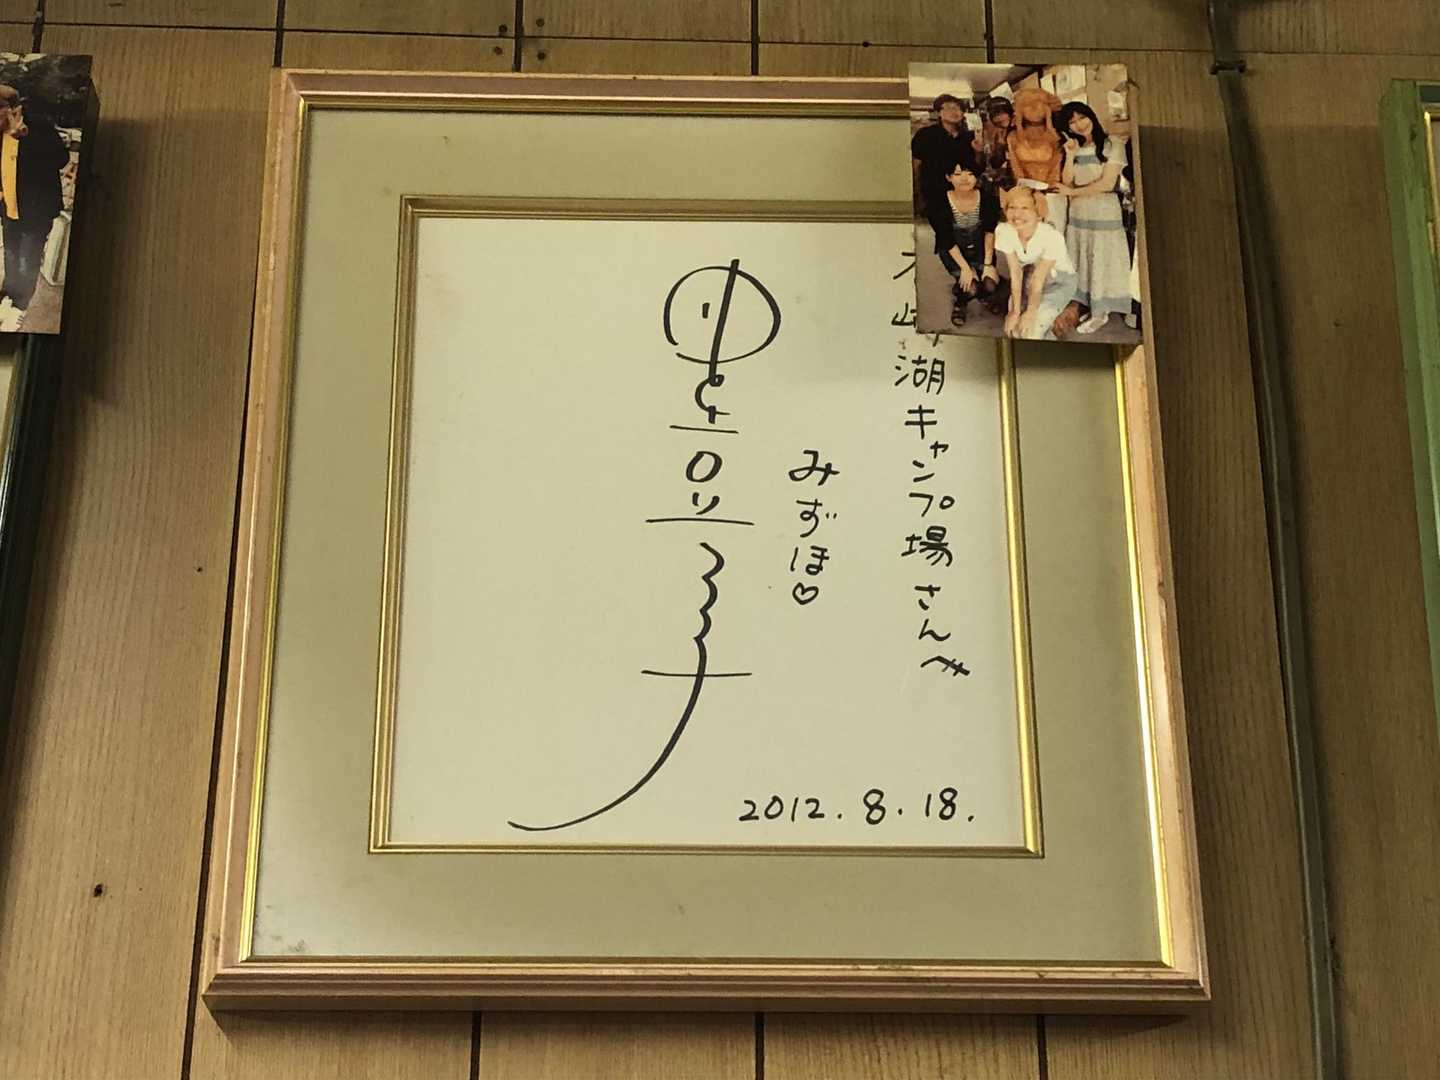 木崎湖キャンプ場さんへ
みずほ♡
2012.8.18.